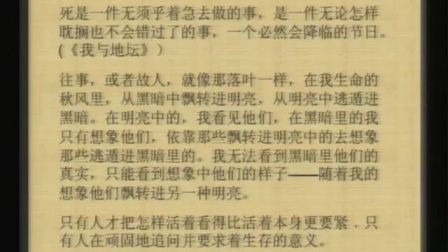 死是一件无须乎着急去做的事，是一件无论怎样
耽搁也不会错过了的事，一个必然会降临的节日。
(《我与地坛》)
往事，或者故人，就像那落叶一样，在我生命的
秋风里，从黑暗中飘转进明亮，从明亮中逃遁进
黑暗。在明亮中的，我看见他们，在黑暗里的我
只有想象他们，依靠那些飘转进明亮中的去想象
那些逃遁进黑暗里的。我无法看到黑暗里他们的
真实，只能看到想象中他们的样子——随着我的
想象他们飘转进另一种明亮。
只有人才把怎样活着看得比活着本身更要紧﹒只
有人在顽固地追问并要求着生存的意义。